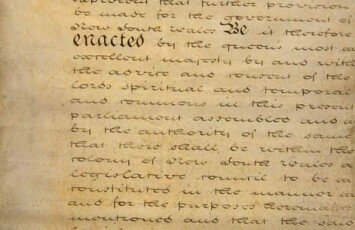 expedient that further provision
be made for the government of
New South Wales Be it therefore
enacted by the queens most ex
cellent majesty by and with
the advice and consent of the
lords spiritual and temporal
and commons in this present
parliament assembled and
by the authority of the same
that there shall be within the
colony of New South Wales a
legislative council to be
constituted in the manner
and for the purposes hereinafter
mentioned and that the said